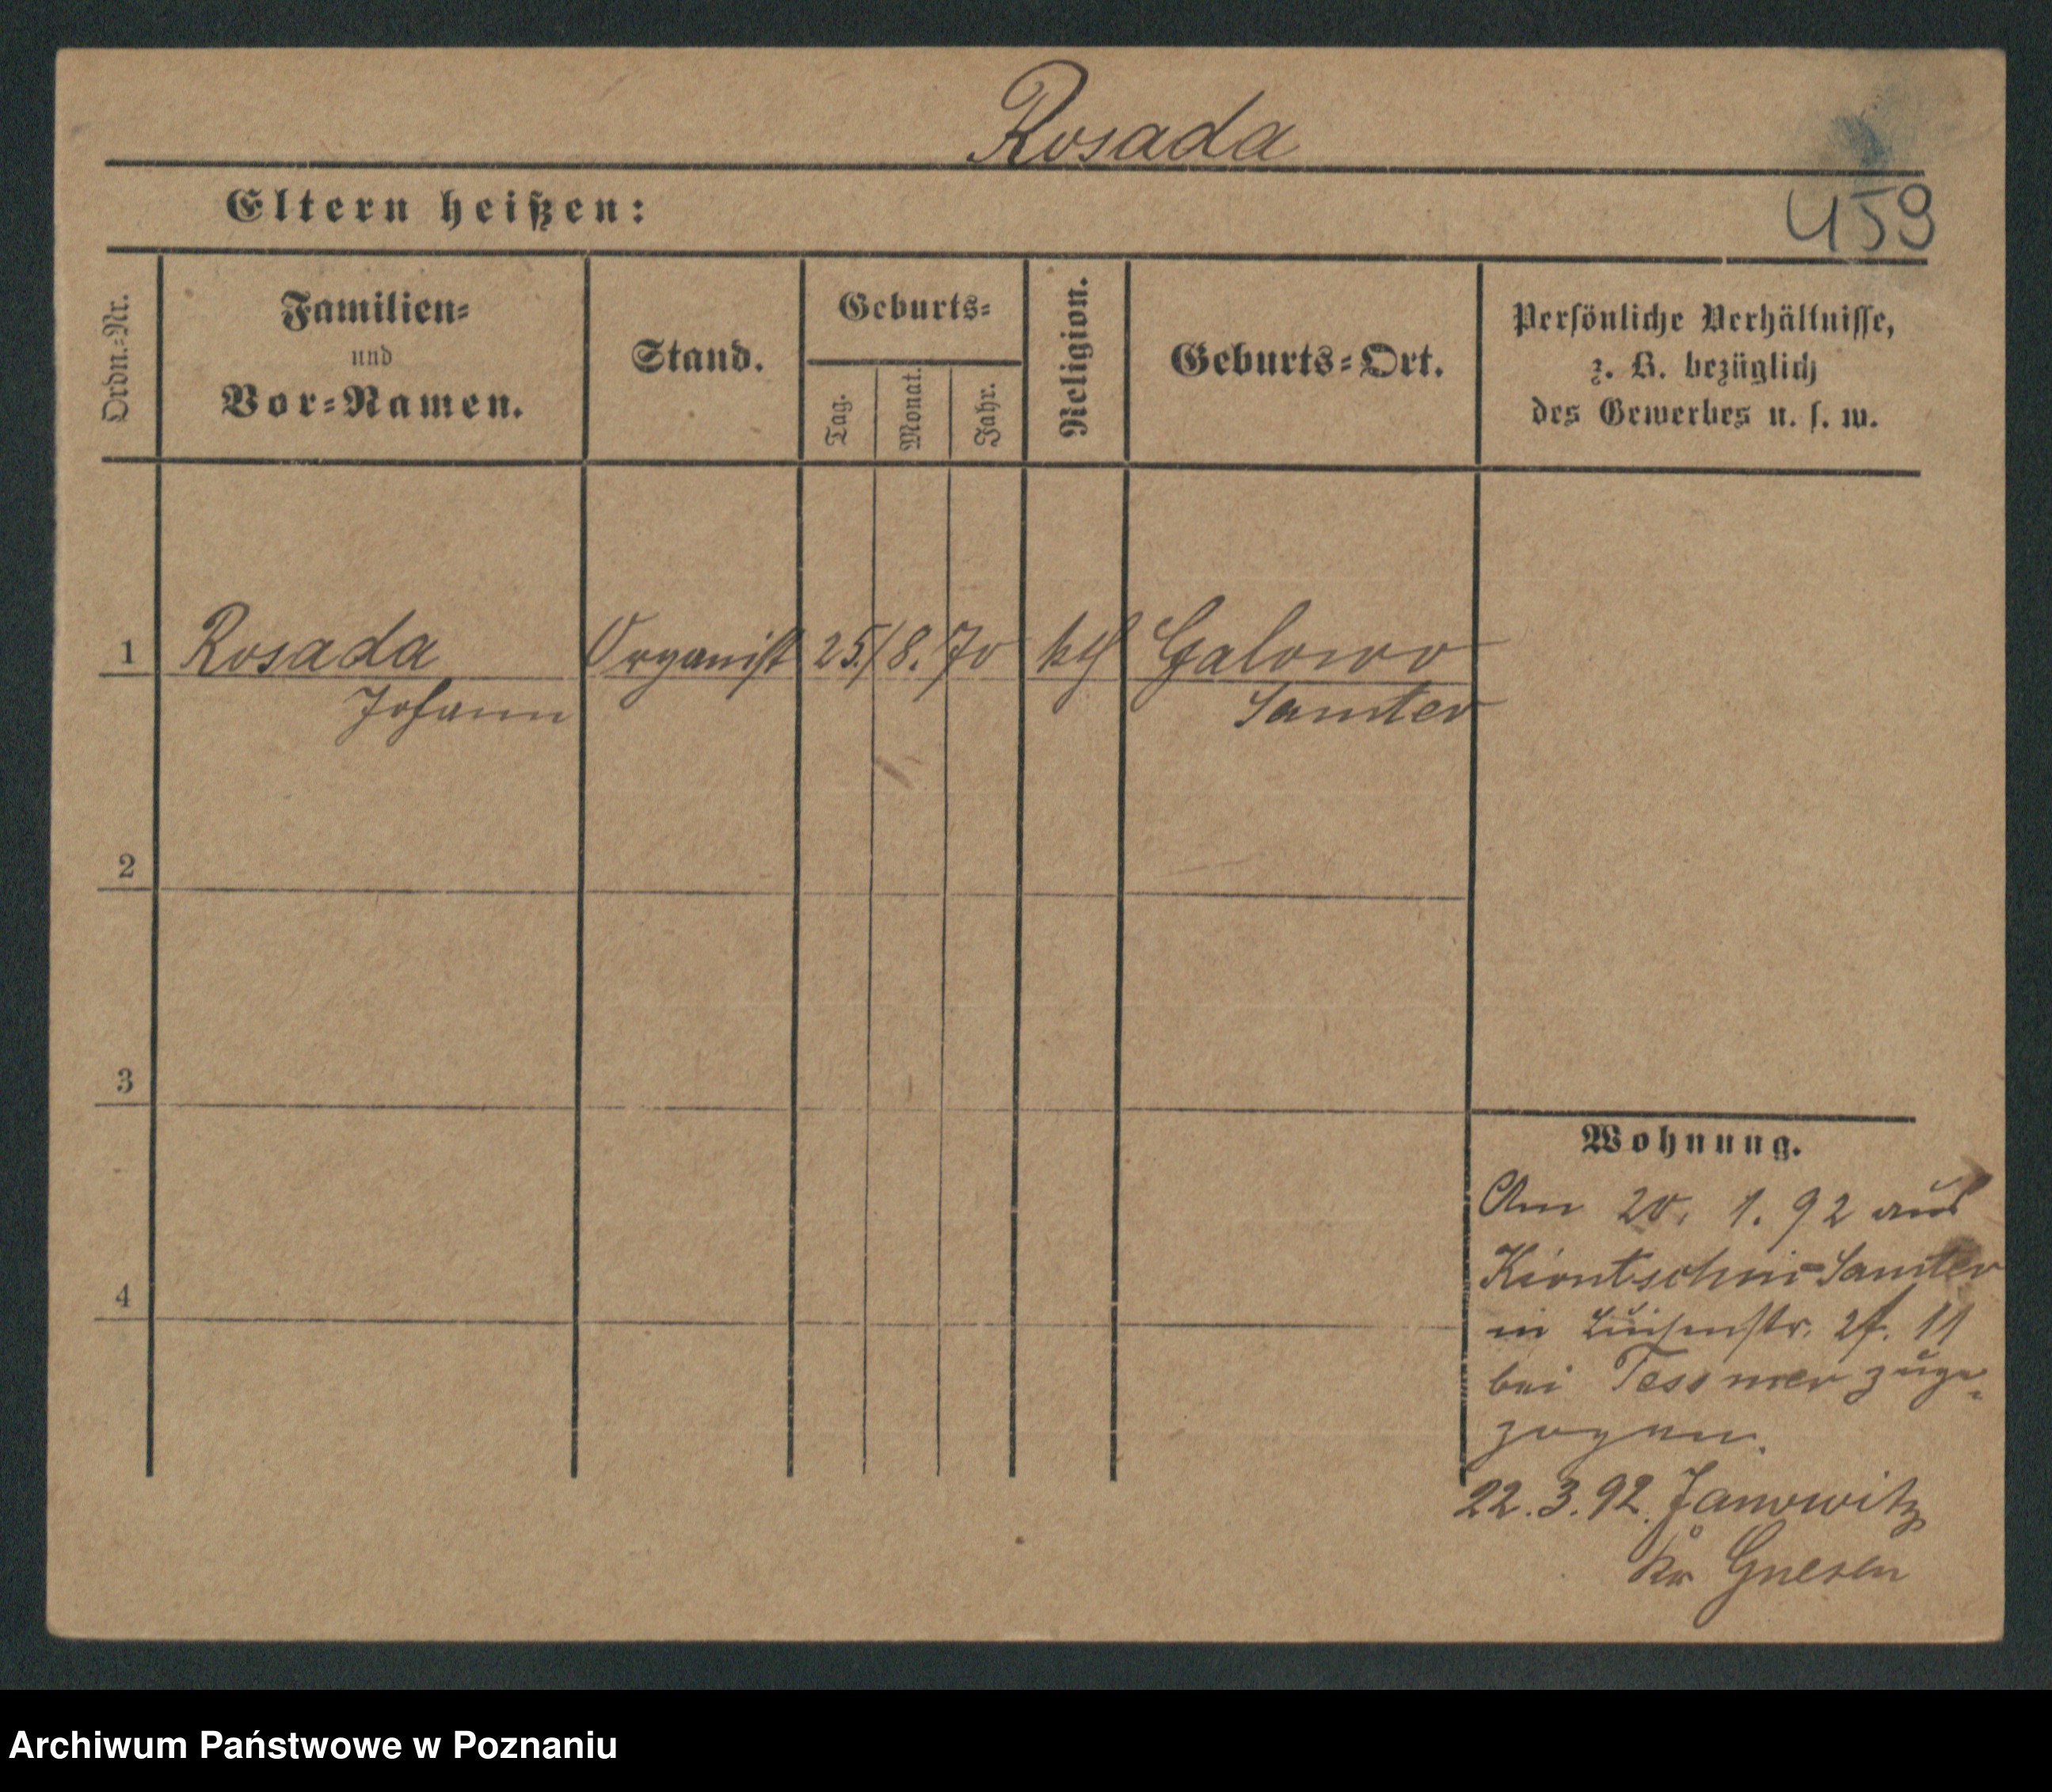 Rosada
Eltern heißen:
459
Ordn.=Nr.
Familien=
und
Vor=Namen.
Stand.
Geburts=
Tag.
Monat.
Jahr.
Religion.
Geburts=Ort.
Persönliche Verhältnisse,
z. B. bezüglich
des Gewerbes u. s. w.
1 Rosada Organist 25./8. 70 kth Galowo
Johann Samter
2
3
4
Wohnung.
Am 20. 1. 92 aus
Samter
in Luisenstr. 11
bei Tessmer zuge=
zogen.
22.3.92. Janowitz
Kr Gnesen
Archiwum Państwowe w Poznaniu